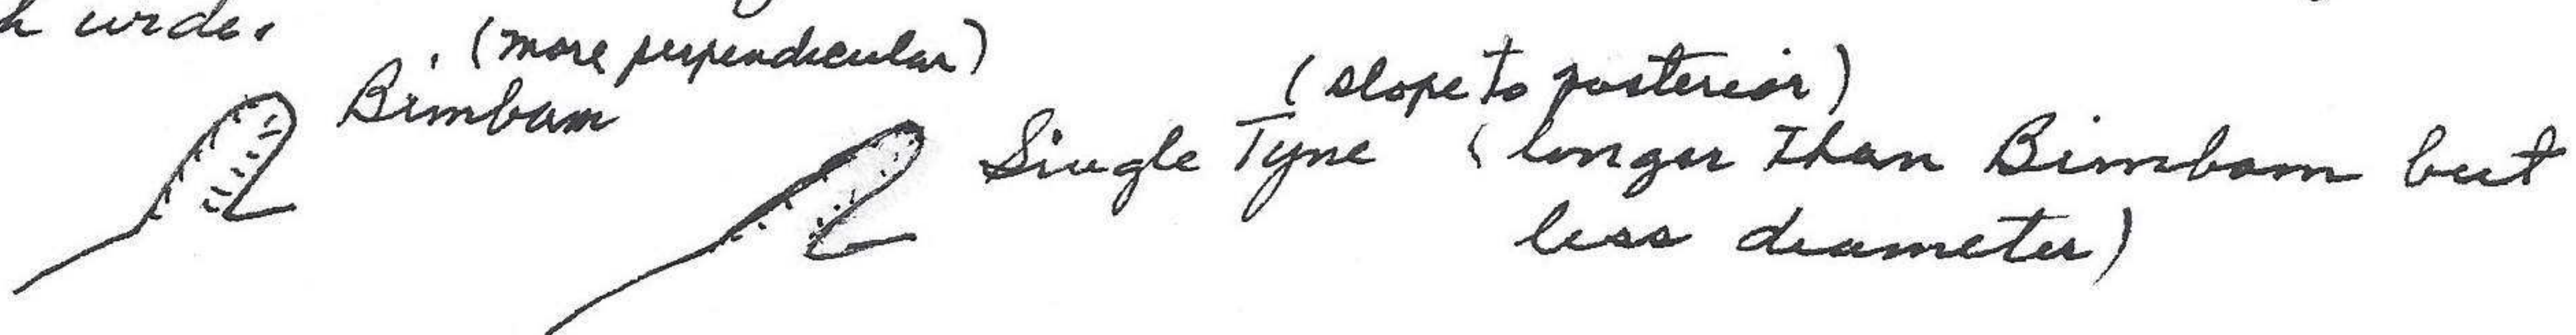 wide.
(more perpendicular)
Bimbam
(slope to posterior)
Single Tyne (longer than Bimbam but
less diameter)